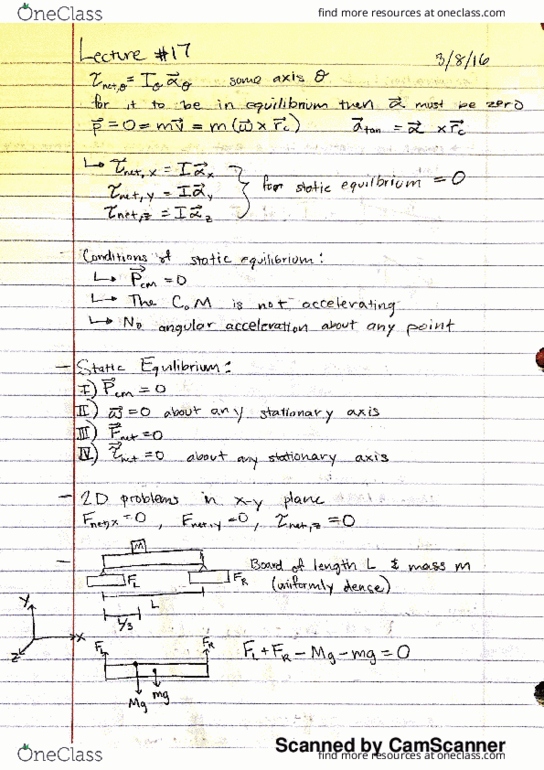 OneClass find more resources at oneclass.com
Lecture #17 3/8/16
τ⃗net,θ = Iθ α⃗θ some axis θ
for it to be in equilibrium then α⃗ must be zero
p⃗ = 0 = mv⃗ = m(ω⃗ × r⃗c) a⃗tan = α⃗ × r⃗c
↳ τ⃗net,x = Iα⃗x
τ⃗net,y = Iα⃗y } for static equilbrium = 0
τ⃗net,z = Iα⃗z
Conditions of static equilibrium:
↳ P⃗cm = 0
↳ The C.o M is not accelerating
↳ No angular acceleration about any point
– Static Equilibrium:
I) P⃗cm = 0
II) ω⃗ = 0 about any stationary axis
III) F⃗net = 0
IV) τ⃗net = 0 about any stationary axis
– 2D problems in x-y plane
Fnet,x = 0, Fnet,y = 0, τnet,z = 0
– M
FL FR Board of length L & mass m
(uniformly dense)
L
L/3
y
x
z
FL FR FL + FR – Mg – mg = 0
Mg mg
Scanned by CamScanner
OneClass find more resources at oneclass.com